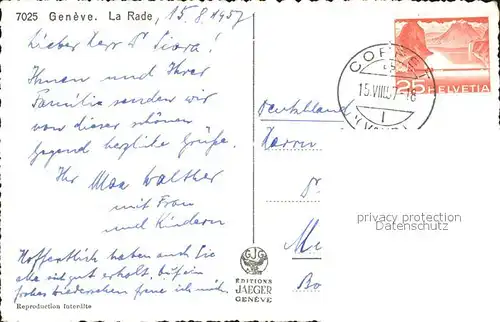 7025 Genève. La Rade, 15.8.1957
Lieber Herr Dr
Ihnen und Ihrer
Familie senden wir
von dieser schönen
Gegend herzliche Grüße.
Ihr Max Walther
mit Frau
und Kindern
Hoffentlich haben auch Sie
alle sich gut erholt. Auf ein
frohes Wiedersehen freue ich mich
Reproduction interdite
EDITIONS
JAEGER
GENÈVE
COPPET
15.VIII.57-18
25 HELVETIA
Deutschland
Herrn
Dr.
privacy protection
Datenschutz